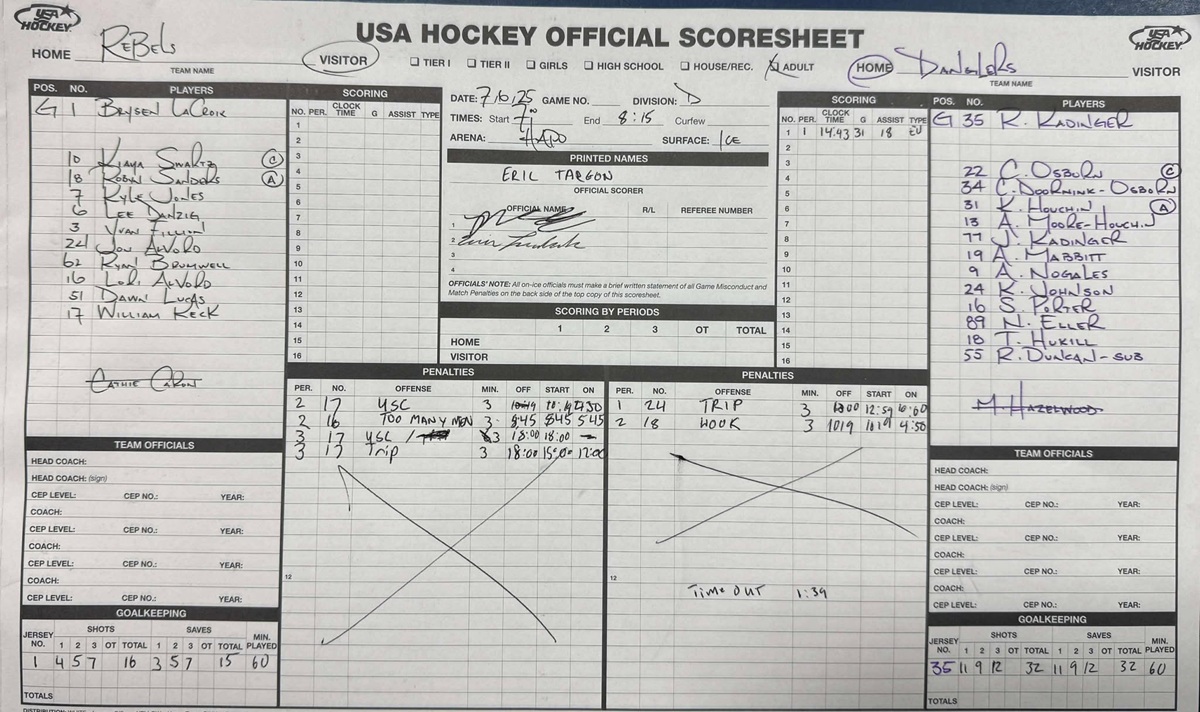 USA HOCKEY
USA HOCKEY OFFICIAL SCORESHEET
USA HOCKEY
HOME REBELS VISITOR
TEAM NAME
☐ TIER I ☐ TIER II ☐ GIRLS ☐ HIGH SCHOOL ☐ HOUSE/REC. ☒ ADULT
HOME DANGLERS VISITOR
TEAM NAME
POS. NO. PLAYERS
G 1 BRYSEN LACROIX
10 KIAYA SWARTZ C
18 ROBYN SANDERS A
7 KYLE JONES
6 LEE DANZIG
3 YVAN FILLION
24 JON ALVORD
62 RYAN BRUMWELL
16 LORI ALVORD
51 DAWN LUCAS
17 WILLIAM KECK
CATHIE CARON
TEAM OFFICIALS
HEAD COACH:
HEAD COACH: (sign)
CEP LEVEL: CEP NO.: YEAR:
COACH:
CEP LEVEL: CEP NO.: YEAR:
COACH:
CEP LEVEL: CEP NO.: YEAR:
COACH:
CEP LEVEL: CEP NO.: YEAR:
GOALKEEPING
SHOTS SAVES
JERSEY NO. 1 2 3 OT TOTAL 1 2 3 OT TOTAL MIN. PLAYED
1 4 5 7 16 3 5 7 15 60
TOTALS
SCORING
NO. PER. CLOCK TIME G ASSIST TYPE
1
2
3
4
5
6
7
8
9
10
11
12
13
14
15
16
DATE: 7/6/25 GAME NO. DIVISION: D
TIMES: Start 7 End 8:15 Curfew
ARENA: HAPO SURFACE: ICE
PRINTED NAMES
ERIC TARGON
OFFICIAL SCORER
OFFICIAL NAME R/L REFEREE NUMBER
1
2
3
4
OFFICIALS' NOTE: All on-ice officials must make a brief written statement of all Game Misconduct and
Match Penalties on the back side of the top copy of this scoresheet.
SCORING BY PERIODS
1 2 3 OT TOTAL
HOME
VISITOR
SCORING
NO. PER. CLOCK TIME G ASSIST TYPE
1 1 14:43 31 18 EV
2
3
4
5
6
7
8
9
10
11
12
13
14
15
16
PENALTIES
PER. NO. OFFENSE MIN. OFF START ON
2 17 USC 3
2 16 TOO MANY MEN 3 845 845 545
3 17 USC / 3 18:00 18:00 —
3 17 Trip 3 18:00 15:00 12:00
12
PENALTIES
PER. NO. OFFENSE MIN. OFF START ON
1 24 TRIP 3 12:59
2 18 HOOK 3 1019 1019 4:50
12
TIME OUT 1:39
POS. NO. PLAYERS
G 35 R. KADINGER
22 C. OSBORN C
34 C. DOORNINK-OSBORN
31 K. HOUCHIN A
13 A. MOORE-HOUCHIN
77 J. KADINGER
19 A. MABBITT
9 A. NOGALES
24 K. JOHNSON
16 S. PORTER
89 N. ELLER
18 T. HUKILL
55 R. DUNCAN-SUB
M. HAZELWOOD
TEAM OFFICIALS
HEAD COACH:
HEAD COACH: (sign)
CEP LEVEL: CEP NO.: YEAR:
COACH:
CEP LEVEL: CEP NO.: YEAR:
COACH:
CEP LEVEL: CEP NO.: YEAR:
COACH:
CEP LEVEL: CEP NO.: YEAR:
GOALKEEPING
SHOTS SAVES
JERSEY NO. 1 2 3 OT TOTAL 1 2 3 OT TOTAL MIN. PLAYED
35 11 9 12 32 11 9 12 32 60
TOTALS